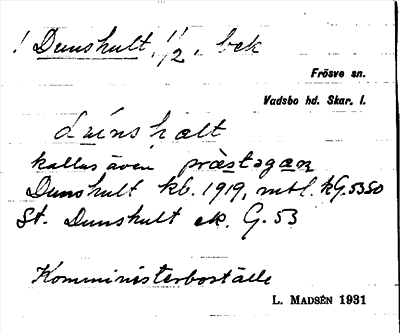 ! Dunshult, 1/2, bek
Frösve sn.
Vadsbo hd. Skar. l.
kallas även præstəgaɳ
Dunshult kb. 1919, mtl. kG. 53 50
St. Dunshult ek. G. 53
Komministerboställe
L. MADSÉN 1931